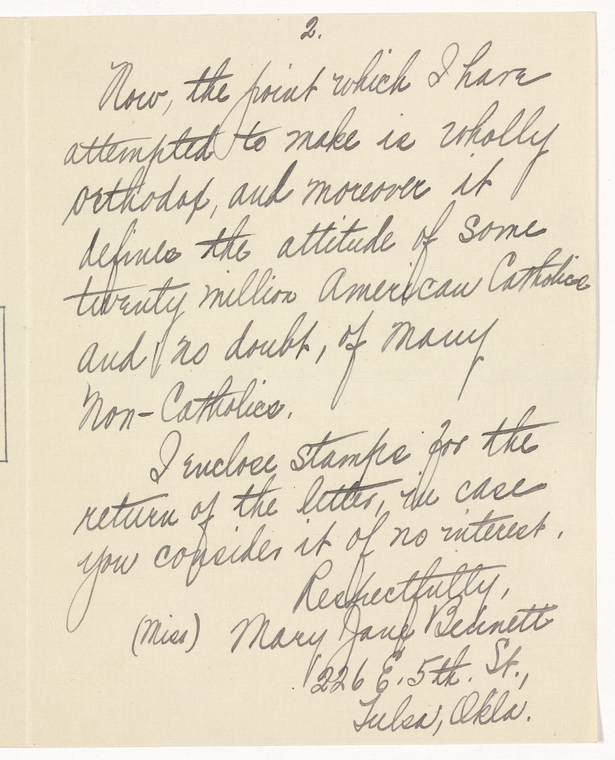 2.
Now, the point which I have
attempted to make is wholly
orthodox, and moreover it
defines the attitude of some
twenty million American Catholics
and, no doubt, of many
Non-Catholics.
I enclose stamps for the
return of the letter, in case
you consider it of no interest.
Respectfully,
(Miss) Mary Jane Bennett
1226 E. 5th. St.,
Tulsa, Okla.